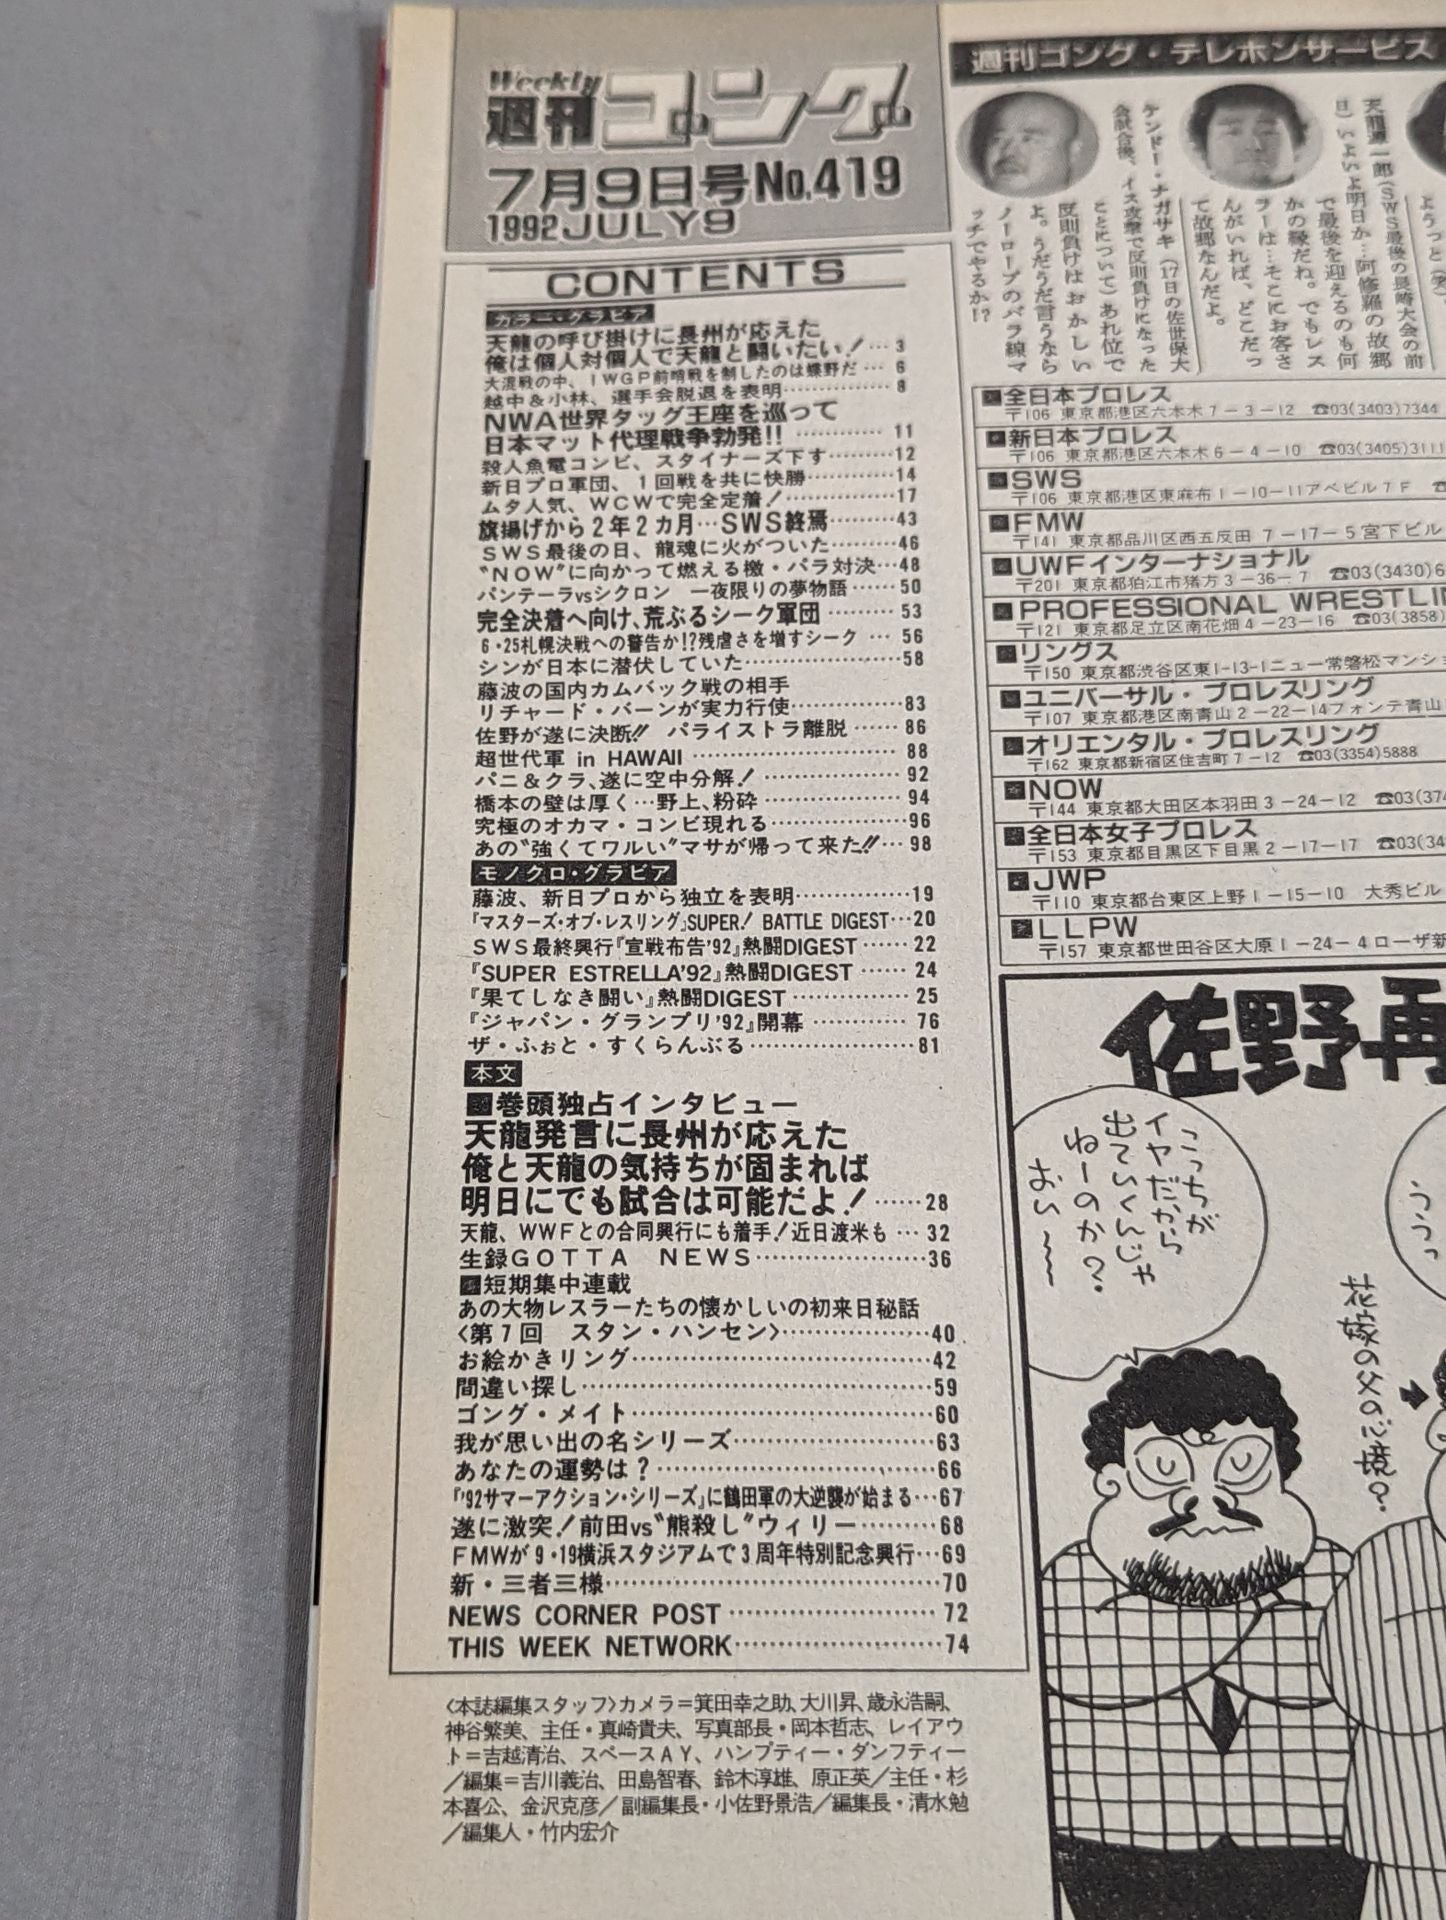 Weekly
週刊ゴング
7月9日号No.419
1992 JULY 9
CONTENTS
カラー・グラビア
天龍の呼び掛けに長州が応えた
俺は個人対個人で天龍と闘いたい!… 3
大混戦の中、IWGP前哨戦を制したのは蝶野だ… 6
越中&小林、選手会脱退を表明………… 8
NWA世界タッグ王座を巡って
日本マット代理戦争勃発!!………… 11
殺人魚雷コンビ、スタイナーズ下す………12
新日プロ軍団、1回戦を共に快勝…………14
ムタ人気、WCWで完全定着!…………17
旗揚げから2年2カ月…SWS終焉………43
SWS最後の日、龍魂に火がついた………46
“NOW”に向かって燃える檄・バラ対決…48
パンテーラvsシクロン 一夜限りの夢物語……50
完全決着へ向け、荒ぶるシーク軍団………53
6・25札幌決戦への警告か!?残虐さを増すシーク… 56
シンが日本に潜伏していた…………………58
藤波の国内カムバック戦の相手
リチャード・バーンが実力行使……………83
佐野が遂に決断!! パライストラ離脱……86
超世代軍 in HAWAII…………………88
バニ&クラ、遂に空中分解!……………92
橋本の壁は厚く…野上、粉砕……………94
究極のオカマ・コンビ現れる……………96
あの“強くてワルい”マサが帰って来た!!…98
モノクロ・グラビア
藤波、新日プロから独立を表明…………19
『マスターズ・オブ・レスリング』SUPER! BATTLE DIGEST…20
SWS最終興行『宣戦布告'92』熱闘DIGEST……22
『SUPER ESTRELLA'92』熱闘DIGEST……24
『果てしなき闘い』熱闘DIGEST…………25
『ジャパン・グランプリ'92』開幕…………76
ザ・ふぉと・すくらんぶる………………81
本文
巻頭独占インタビュー
天龍発言に長州が応えた
俺と天龍の気持ちが固まれば
明日にでも試合は可能だよ!……28
天龍、WWFとの合同興行にも着手!近日渡米も… 32
生録GOTTA NEWS…………………36
短期集中連載
あの大物レスラーたちの懐かしいの初来日秘話
〈第7回 スタン・ハンセン〉………………40
お絵かきリング……………………………42
間違い探し…………………………………59
ゴング・メイト……………………………60
我が思い出の名シリーズ…………………63
あなたの運勢は?…………………………66
『'92サマーアクション・シリーズ』に鶴田軍の大逆襲が始まる…67
遂に激突!前田vs“熊殺し”ウィリー………68
FMWが9・19横浜スタジアムで3周年特別記念興行…69
新・三者三様………………………………70
NEWS CORNER POST……………………72
THIS WEEK NETWORK……………………74
〈本誌編集スタッフ〉カメラ=箕田幸之助、大川昇、歳永浩嗣、
神谷繁美、主任・真崎貴夫、写真部長・岡本哲志、レイアウ
ト=吉越清治、スペースAY、ハンプティー・ダンプティー
/編集=吉川義治、田島智春、鈴木淳雄、原正英/主任・杉
本喜公、金沢克彦/副編集長・小佐野景浩/編集長・清水勉
/編集人・竹内宏介
週刊ゴング・テレホンサービス
ケンドー・ナガサキ(17日の佐世保大
会試合後、イス攻撃で反則負けになった
ことについて)あれ位で
反則負けはおかしい
よ。うだうだ言うなら
ノーロープのバラ線マ
ッチでやるか!?
天龍源一郎(SWS最後の長崎大会の前
日)いよいよ明日か…阿修羅の故郷
で最後を迎えるのも何
かの縁だね。でもレス
ラーは…そこにお客さ
んがいれば、どこだっ
て故郷なんだよ。
ようっと(笑)
全日本プロレス
〒106 東京都港区六本木7-3-12 ☎03(3403)7344
新日本プロレス
〒106 東京都港区六本木6-4-10 ☎03(3405)3111
SWS
〒106 東京都港区東麻布1-10-11アベビル7F ☎
FMW
〒141 東京都品川区西五反田 7-17-5宮下ビル
UWFインターナショナル
〒201 東京都狛江市猪方3-36-7 ☎03(3430)6
PROFESSIONAL WRESTLIN
〒121 東京都足立区南花畑4-23-16 ☎03(3858)
リングス
〒150 東京都渋谷区東1-13-1ニュー常磐松マンショ
ユニバーサル・プロレスリング
〒107 東京都港区南青山2-22-14フォンテ青山
オリエンタル・プロレスリング
〒162 東京都新宿区住吉町7-12 ☎03(3354)5888
NOW
〒144 東京都大田区本羽田3-24-12 ☎03(374
全日本女子プロレス
〒153 東京都目黒区下目黒2-17-17 ☎03(34
JWP
〒110 東京都台東区上野1-15-10 大秀ビル
LLPW
〒157 東京都世田谷区大原1-24-4ローザ新
佐野再
こっちが
イヤだから
出ていくんじゃ
ねーのか?
おい〜〜
ううっ
花嫁の父の心境?